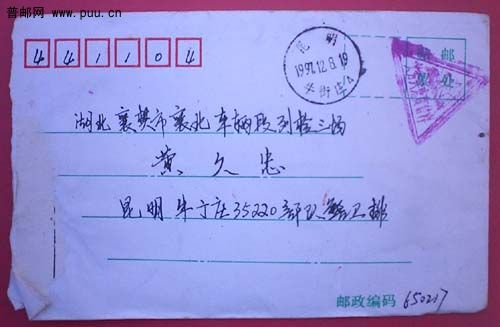 普邮网 www.puu.cn
441104
昆明
1997.12.8.19
邮
票处
湖北襄樊市襄北车辆段列检三场
黄久忠
昆明牛街庄35220部队警卫排
邮政编码 650217